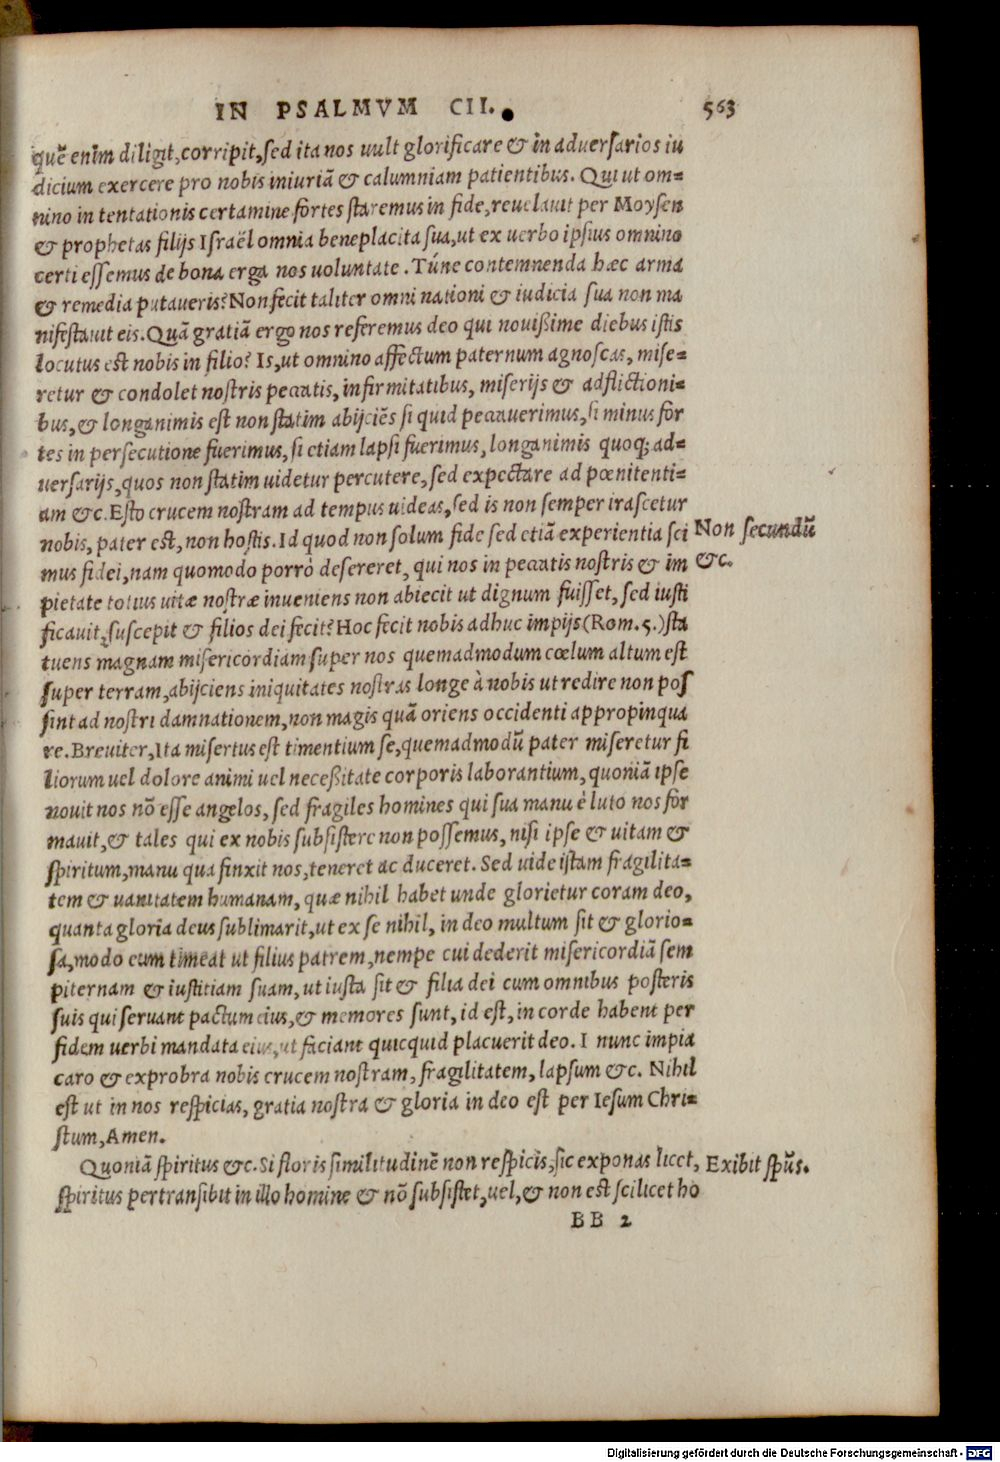 IN PSALMVM CII. 563
quē enim diligit, corripit, sed ita nos uult glorificare & in aduersarios iu
dicium exercere pro nobis iniuriā & calumniam patientibus. Qui ut om=
nino in tentationis certamine fortes staremus in fide, reuelauit per Moysen
& prophetas filijs Israël omnia beneplacita sua, ut ex uerbo ipsius omnino
certi essemus de bona erga nos uoluntate. Túne contemnenda hæc arma
& remedia putaueris? Non fecit taliter omni nationi & iudicia sua non ma
nifestauit eis. Quā gratiā ergo nos referemus deo qui nouißime diebus istis
locutus est nobis in filio? Is, ut omnino affectum paternum agnoscas, mise=
retur & condolet nostris peccatis, infirmitatibus, miserijs & adflictioni=
bus, & longanimis est non statim abijciēs si quid peccauerimus, si minus for
tes in persecutione fuerimus, si etiam lapsi fuerimus, longanimis quoq; ad=
uersarijs, quos non statim uidetur percutere, sed expectare ad pœnitenti=
am &c. Esto crucem nostram ad tempus uideas, sed is non semper irascetur
nobis, pater est, non hostis. Id quod non solum fide sed etiā experientia sci
Non secundū
mus fidei, nam quomodo porrò desereret, qui nos in peccatis nostris & im
&c.
pietate totius uitæ nostræ inueniens non abiecit ut dignum fuisset, sed iusti
ficauit, suscepit & filios dei fecit? Hoc fecit nobis adhuc impijs (Rom. 5.) sta
tuens magnam misericordiam super nos quemadmodum cœlum altum est
super terram, abijciens iniquitates nostras longe à nobis ut redire non pos
sint ad nostri damnationem, non magis quā oriens occidenti appropinqua
re. Breuiter, Ita misertus est timentium se, quemadmodū pater miseretur fi
liorum uel dolore animi uel neceßitate corporis laborantium, quoniā ipse
nouit nos nō esse angelos, sed fragiles homines qui sua manu è luto nos for
mauit, & tales qui ex nobis subsistere non possemus, nisi ipse & uitam &
spiritum, manu qua finxit nos, teneret ac duceret. Sed uide istam fragilita=
tem & uanitatem humanam, quæ nihil habet unde glorietur coram deo,
quanta gloria deus sublimarit, ut ex se nihil, in deo multum sit & glorio=
sa, modo eum timeat ut filius patrem, nempe cui dederit misericordiā sem
piternam & iustitiam suam, ut iusta sit & filia dei cum omnibus posteris
suis qui seruant pactum eius, & memores sunt, id est, in corde habent per
fidem uerbi mandata eius, ut faciant quicquid placuerit deo. I nunc impia
caro & exprobra nobis crucem nostram, fragilitatem, lapsum &c. Nihil
est ut in nos respicias, gratia nostra & gloria in deo est per Iesum Chri=
stum, Amen.
Quoniā spiritus &c. Si floris similitudinē non respicis, sic exponas licet,
Exibit spūs.
spiritus pertransibit in illo homine & nō subsistet, uel, & non est scilicet ho
BB 2
Digitalisierung gefördert durch die Deutsche Forschungsgemeinschaft - DFG